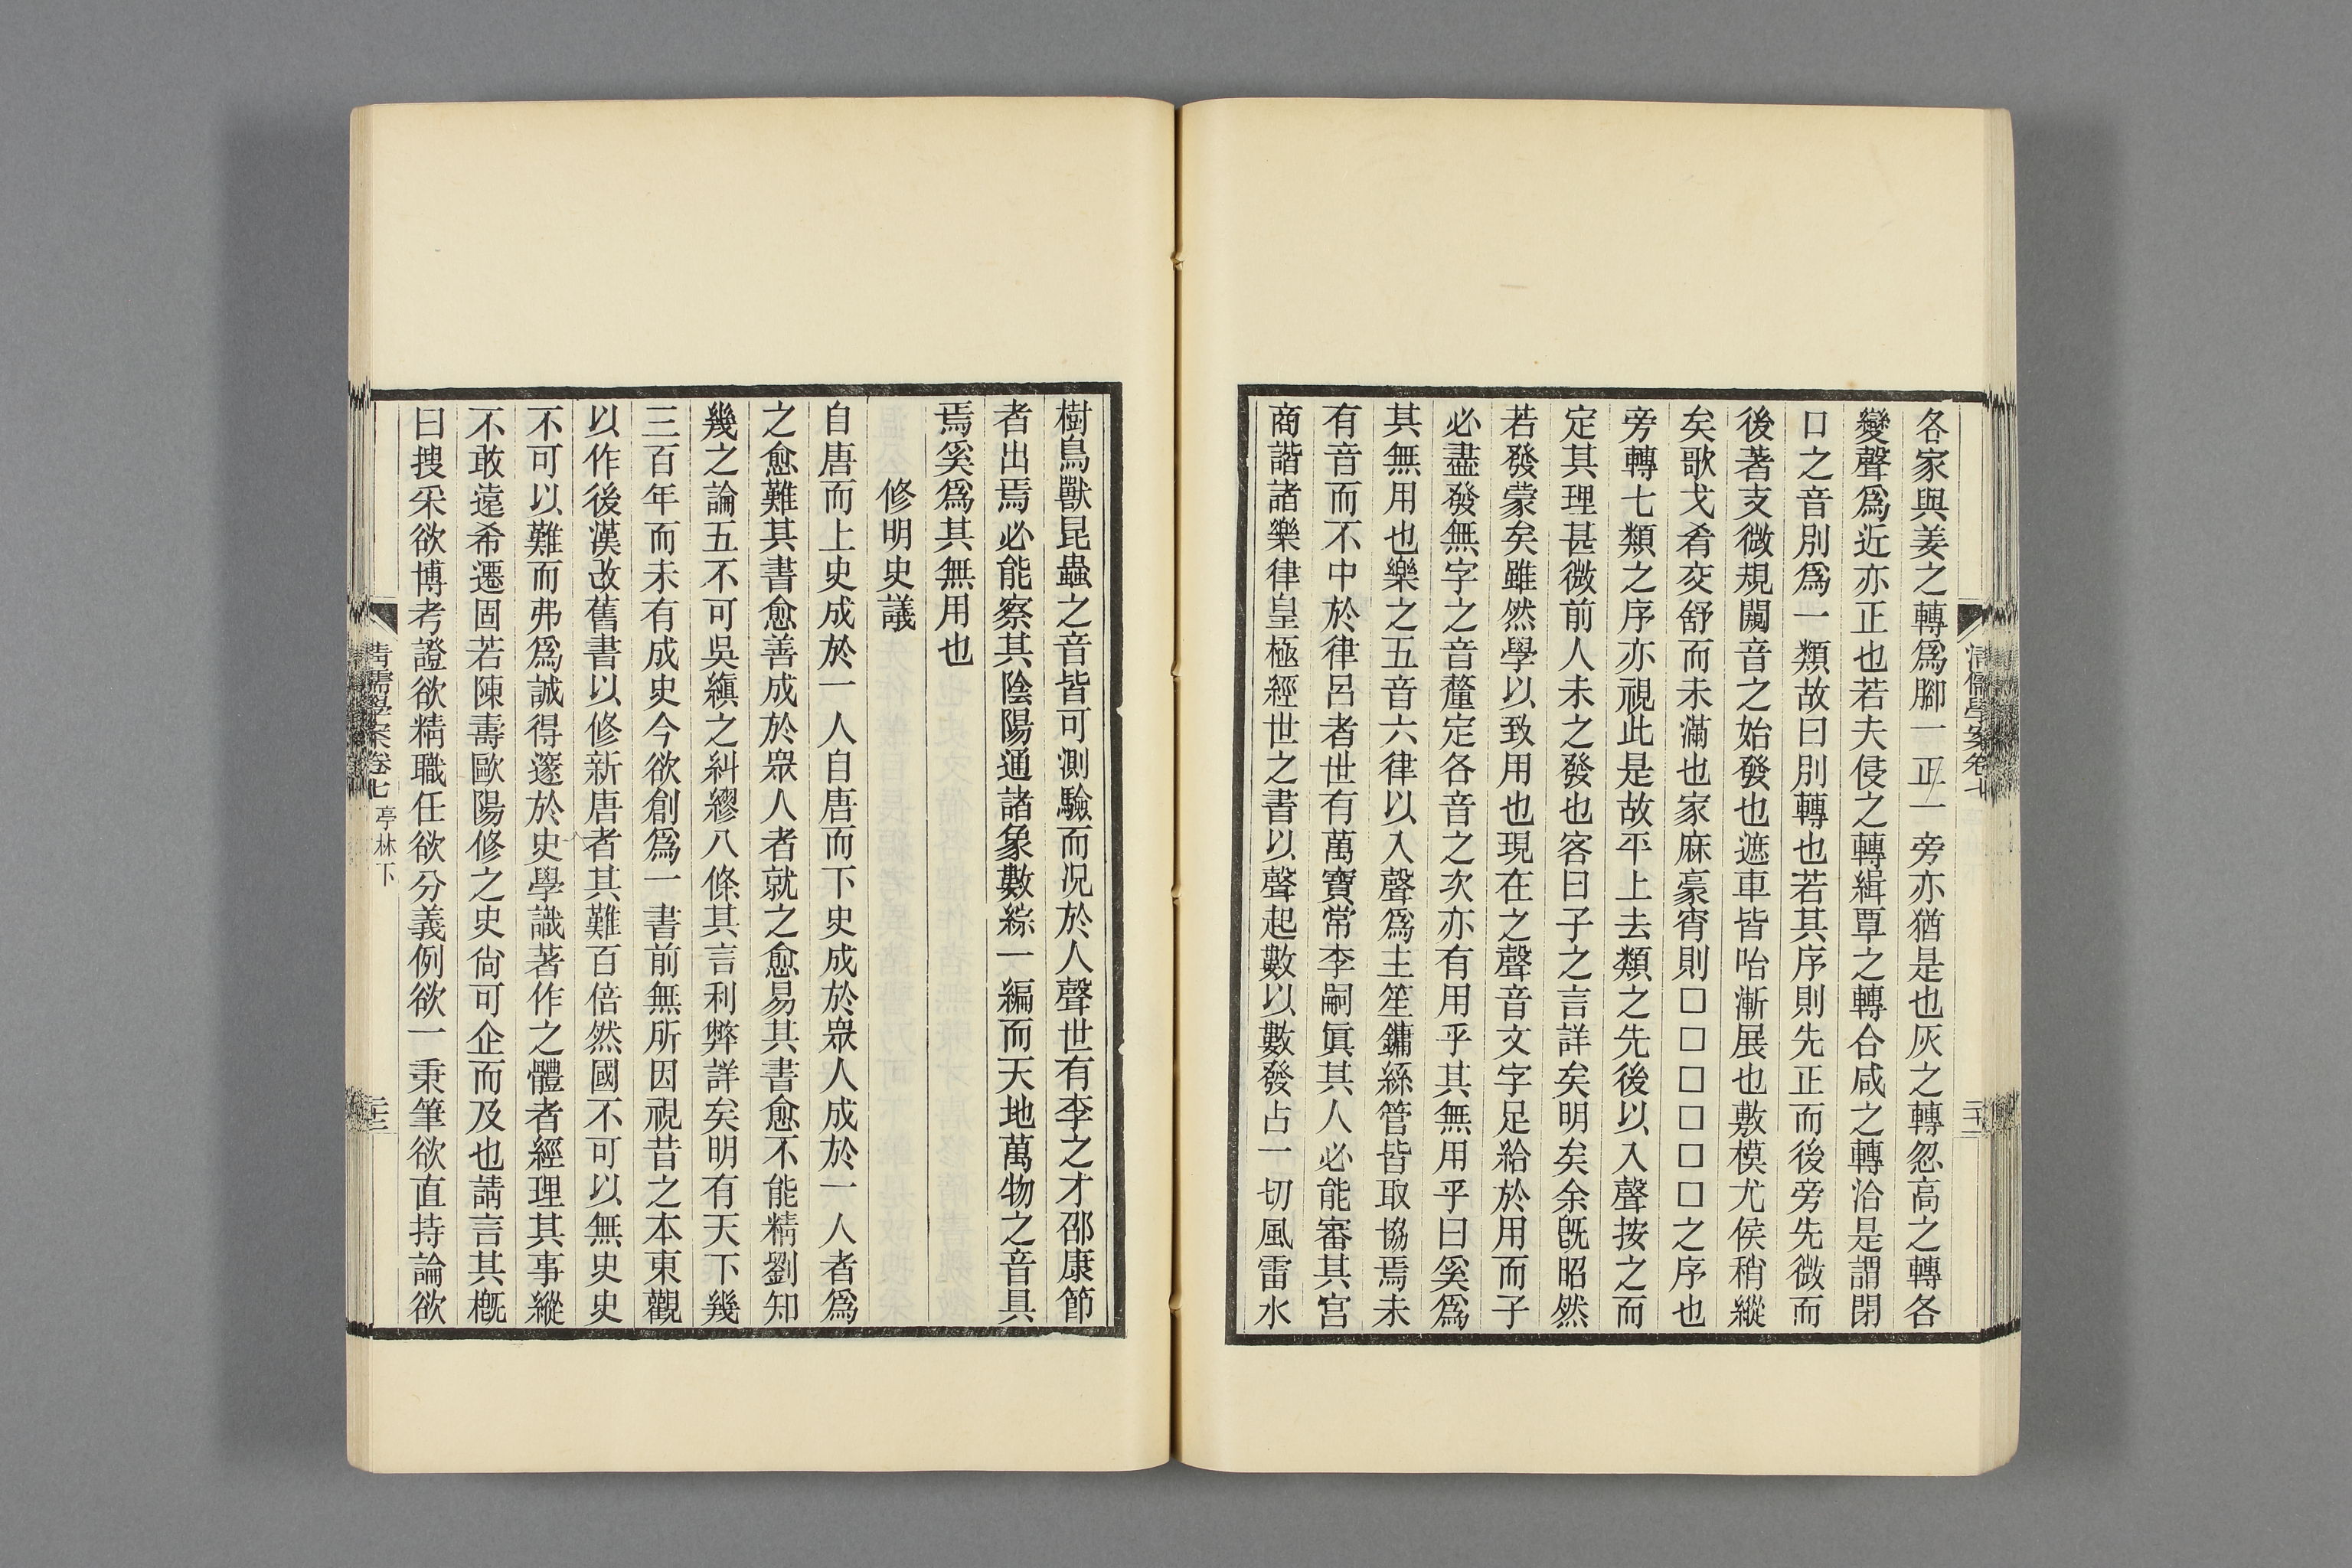 各家與姜之轉爲腳一正一旁亦猶是也灰之轉忽高之轉各
變聲爲近亦正也若夫侵之轉緝覃之轉合咸之轉洽是謂閉
口之音別爲一類故曰別轉也若其序則先正而後旁先微而
後著支微規闚音之始發也遮車皆咍漸展也敷模尤侯稍縱
矣歌戈肴交舒而未滿也家麻豪宵則□□□□□□之序也
旁轉七類之序亦視此是故平上去類之先後以入聲按之而
定其理甚微前人未之發也客曰子之言詳矣明矣余旣昭然
若發蒙矣雖然學以致用也現在之聲音文字足給於用而子
必盡發無字之音釐定各音之次亦有用乎其無用乎曰奚爲
其無用也樂之五音六律以入聲爲主笙鏞絲管皆取協焉未
有音而不中於律呂者世有萬寶常李嗣眞其人必能審其宮
商諧諸樂律皇極經世之書以聲起數以數發占一切風雷水
樹鳥獸昆蟲之音皆可測驗而況於人聲世有李之才邵康節
者出焉必能察其陰陽通諸象數綜一編而天地萬物之音具
焉奚爲其無用也
修明史議
自唐而上史成於一人自唐而下史成於眾人成於一人者爲
之愈難其書愈善成於眾人者就之愈易其書愈不能精劉知
幾之論五不可吳縝之糾繆八條其言利弊詳矣明有天下幾
三百年而未有成史今欲創爲一書前無所因視昔之本東觀
以作後漢改舊書以修新唐者其難百倍然國不可以無史史
不可以難而弗爲誠得邃於史學識著作之體者經理其事縱
不敢遠希遷固若陳壽歐陽修之史尙可企而及也請言其槪
曰搜采欲博考證欲精職任欲分義例欲一秉筆欲直持論欲
清儒學案卷七 亭林下